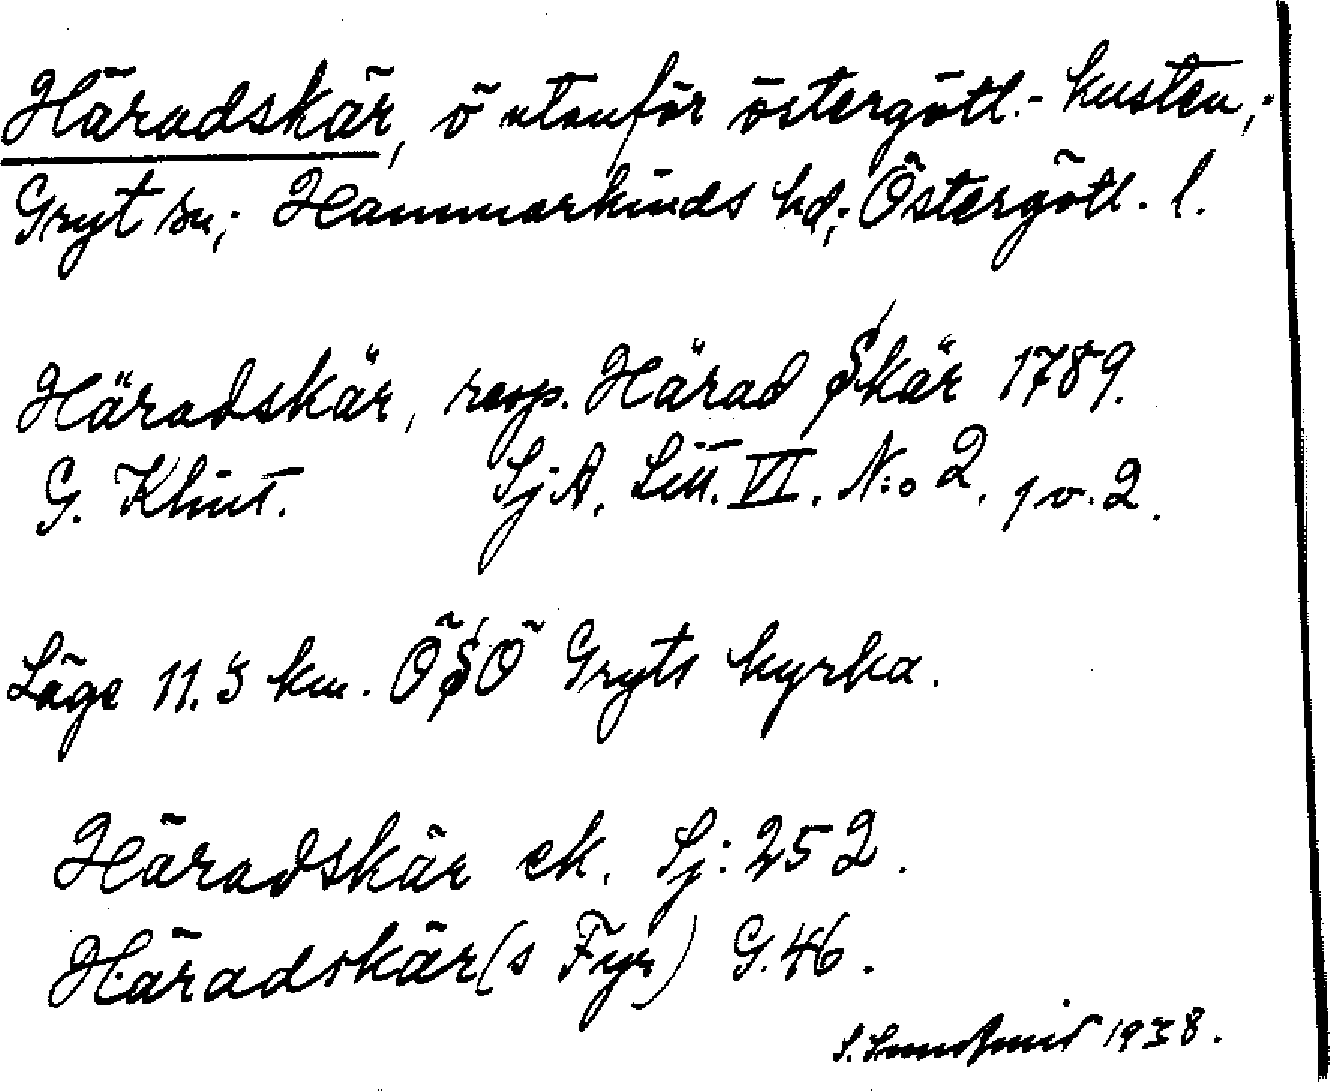 Häradskär, ö utanför östergötl.-kusten,;
Gryt sn; Hammarkinds hd; Östergötl. l.
Häradskär, resp. Härad Skär 1789.
G. Klint. SjA. Litt. VI. N:o 2. p v. 2.
Läge 11.3 km. ÖSÖ Gryts kyrka.
Häradskär ek. Sj: 252.
Häradskär(s Fyr) G.46.
1938.